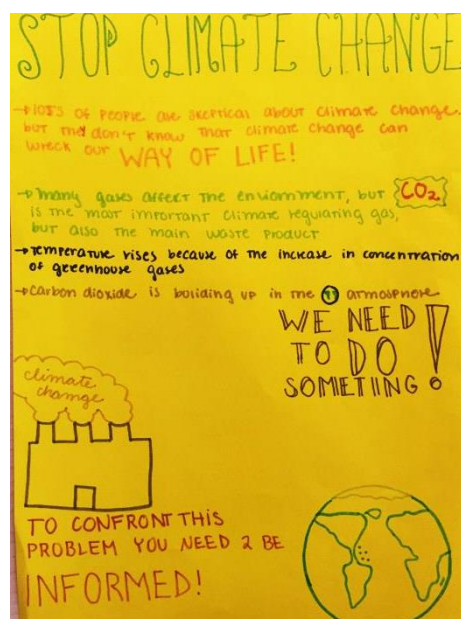 STOP CLIMATE CHANGE
→ LOTS OF PEOPLE are skeptical about climate change.
but they don't know that climate change can
wreck our WAY OF LIFE!
→ many gases affect the enviornment, but CO2
is the most important climate regulating gas,
but also the main waste product
→ Temperature rises because of the increase in concentration
of greenhouse gases
→ Carbon dioxide is building up in the atmosphere
WE NEED
TO DO
SOMETHING!
climate
change
TO CONFRONT THIS
PROBLEM YOU NEED 2 BE
INFORMED!